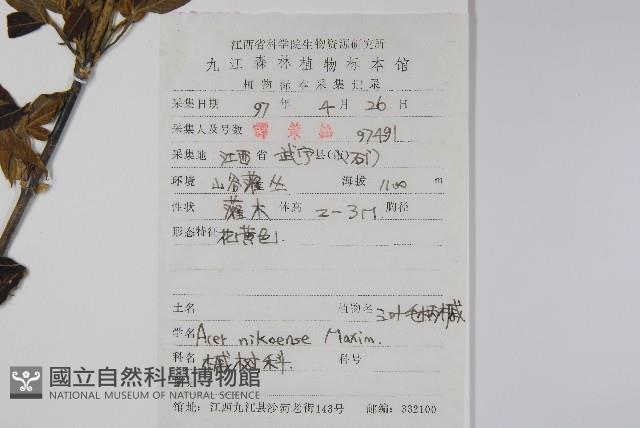 江西省科学院生物资源研究所
九江森林植物标本馆
植物标本采集记录
采集日期 97 年 4 月 26 日
采集人及号数 谭策铭 97491
采集地 江西 省 武宁 县(市) 石门
环境 山谷灌丛 海拔 1100 m
性状 灌木 体高 2-3M 胸径
形态特征 花黄色.
土名 植物名 三叶毛柄槭
学名 Acer nikoense Maxim.
科名 槭树科. 称号
國立自然科學博物館
NATIONAL MUSEUM OF NATURAL SCIENCE
馆址: 江西九江县沙河老街143号 邮编: 332100